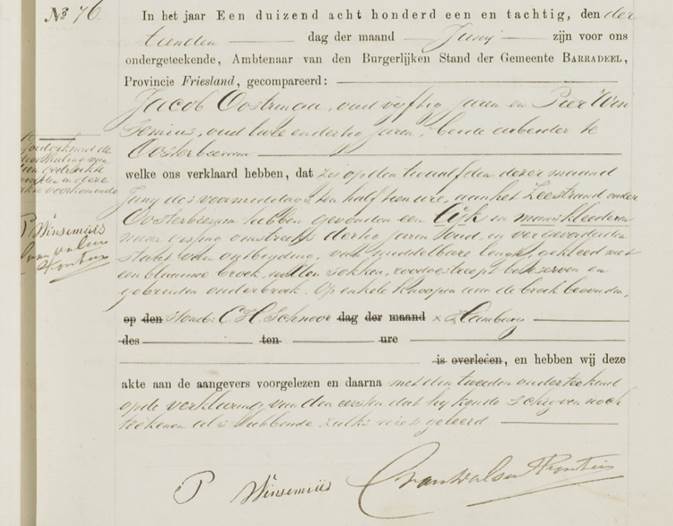 No 76.
In het jaar Een duizend acht honderd een en tachtig, den der
tienden dag der maand Junij zijn voor ons
ondergeteekende, Ambtenaar van den Burgerlijken Stand der Gemeente BARRADEEL,
Provincie Friesland, gecompareerd:
Jacob Oostringa, oud vijftig jaren en Pier Win
semius, oud twee en dertig jaren, beide arbeider te
Oosterbierum
welke ons verklaard hebben, dat zij op den twaalfden dezer maand
Junij des voormiddags ten half tien ure, aan het Zeestrand onder
Oosterbierum hebben gevonden een Lijk in manskleederen
naar gissing omstreeks dertig jaren oud, in vergevorderden
staat van ontbinding, van middelbare lengte, gekleed met
een blaauwe broek, wollen sokken, en
onderbroek. Op enkele knoopen aan de broek bevonden
op den stond: C. H. Schnoor dag der maand x Hamburg
des ten ure
is overleden, en hebben wij deze
akte aan de aangevers voorgelezen en daarna met den tweeden onderteekend
op de verklaring van den eersten dat hij konde schrijven noch
teekenen als hebbende zulks niet geleerd
P Winsemius
P Winsemius